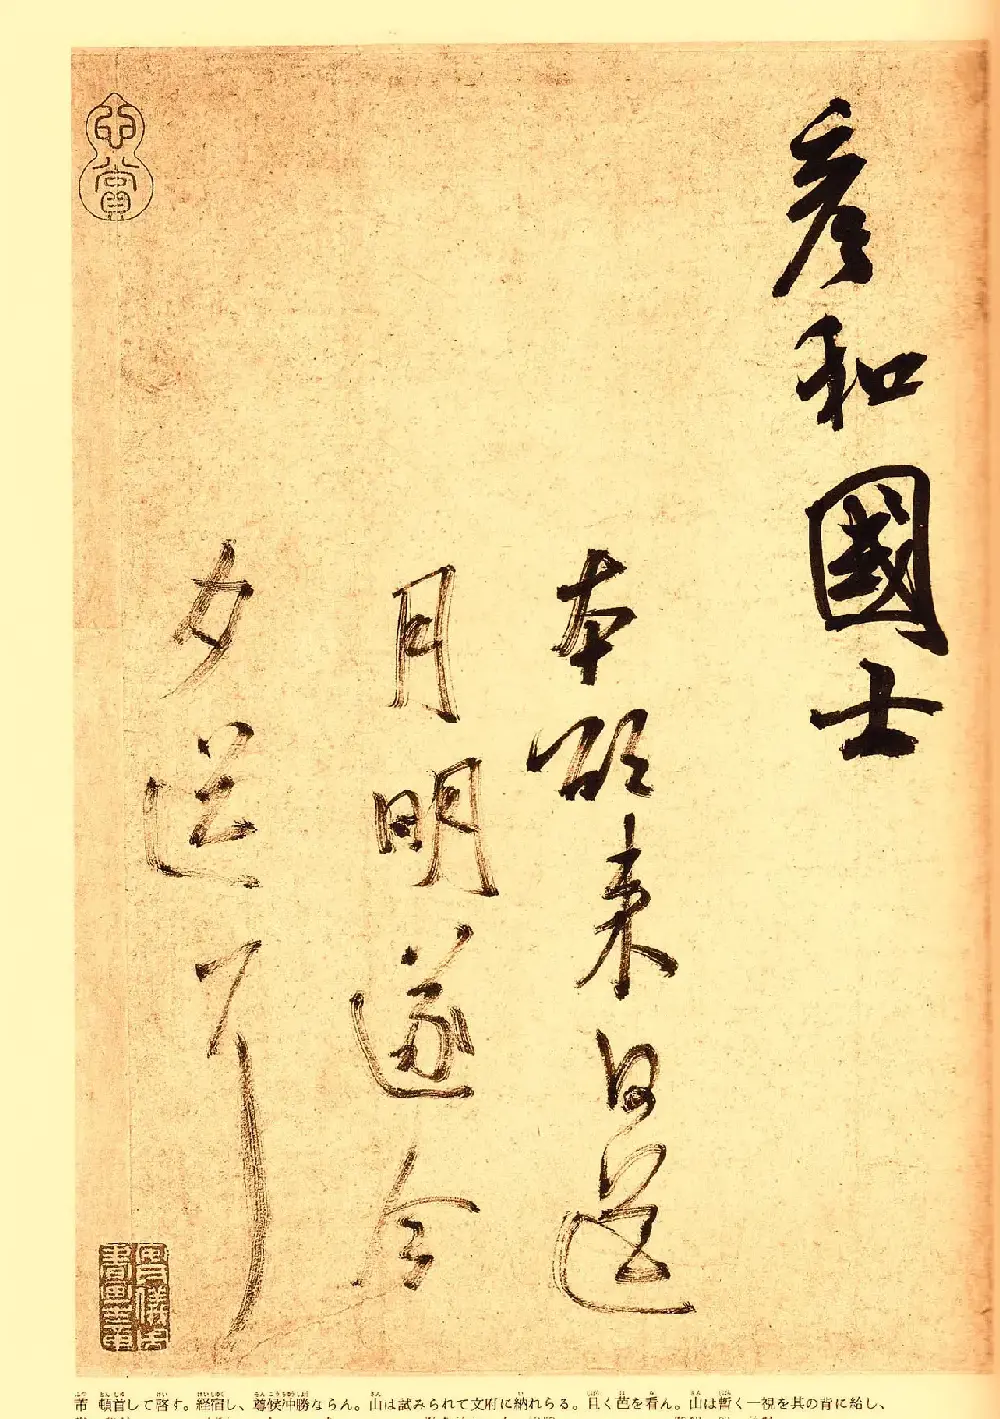 彥和國士
本欲來日送
月明遂今
夕送耳
心賞
安儀周
書畫之章
芾 頓首して啓す。経宿し、尊候冲勝ならん。山は試みられて文府に納れらる。且く芭を看ん。山は暫く一視を其の背に給し、